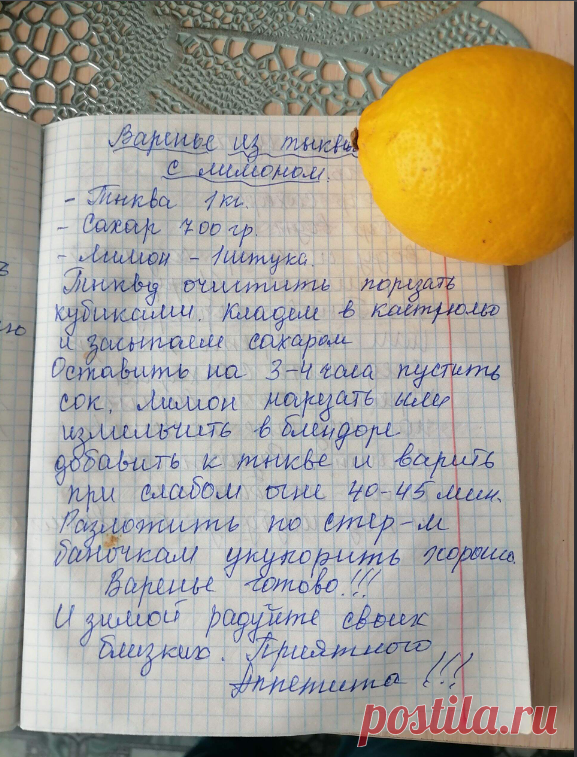 Варенье из тыквы
с лимоном.
- Тыква 1кг.
- Сахар 700гр.
- Лимон - 1штука.
Тыкву очистить порезать
кубиками. Кладем в кастрюлю
и засыпаем сахаром
Оставить на 3-4 часа пустить
сок. Лимон нарезать или
измильчить в блендоре.
добавить к тыкве и варить
при слабом огне 40-45 мин.
Разложить по стер-м
баночкам укупорить хорошо.
Варенье готово!!!
И зимой радуйте своих
близких. Приятного
Аппетита!!!
postila.ru